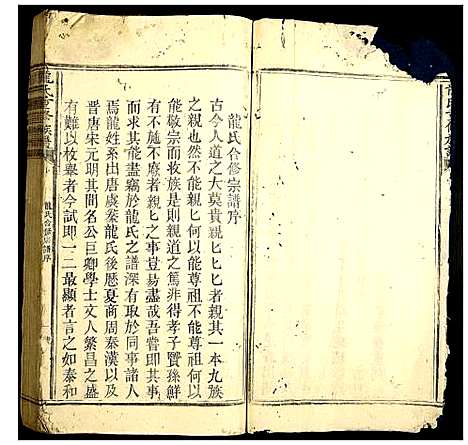 龍氏合修宗譜序
古今人道之大莫貴親匕匕匕者親其一本九族
之親也然不能親匕何以能尊祖不能尊祖何以
能敬宗而收族是則親道之篤非得孝子賢孫鮮
有不施不廢者親匕之事豈易盡哉吾嘗即其事
而求其能於龍氏之譜深有取於同事諸人
焉龍姓系出唐虞豢龍氏後歷夏商周秦漢以及
晋唐宋元明其間名公巨卿學士文人繁昌之盛
有難以枚舉者今試即一二最顯者言之如泰和
龍氏合修宗譜序
龍氏合修族譜